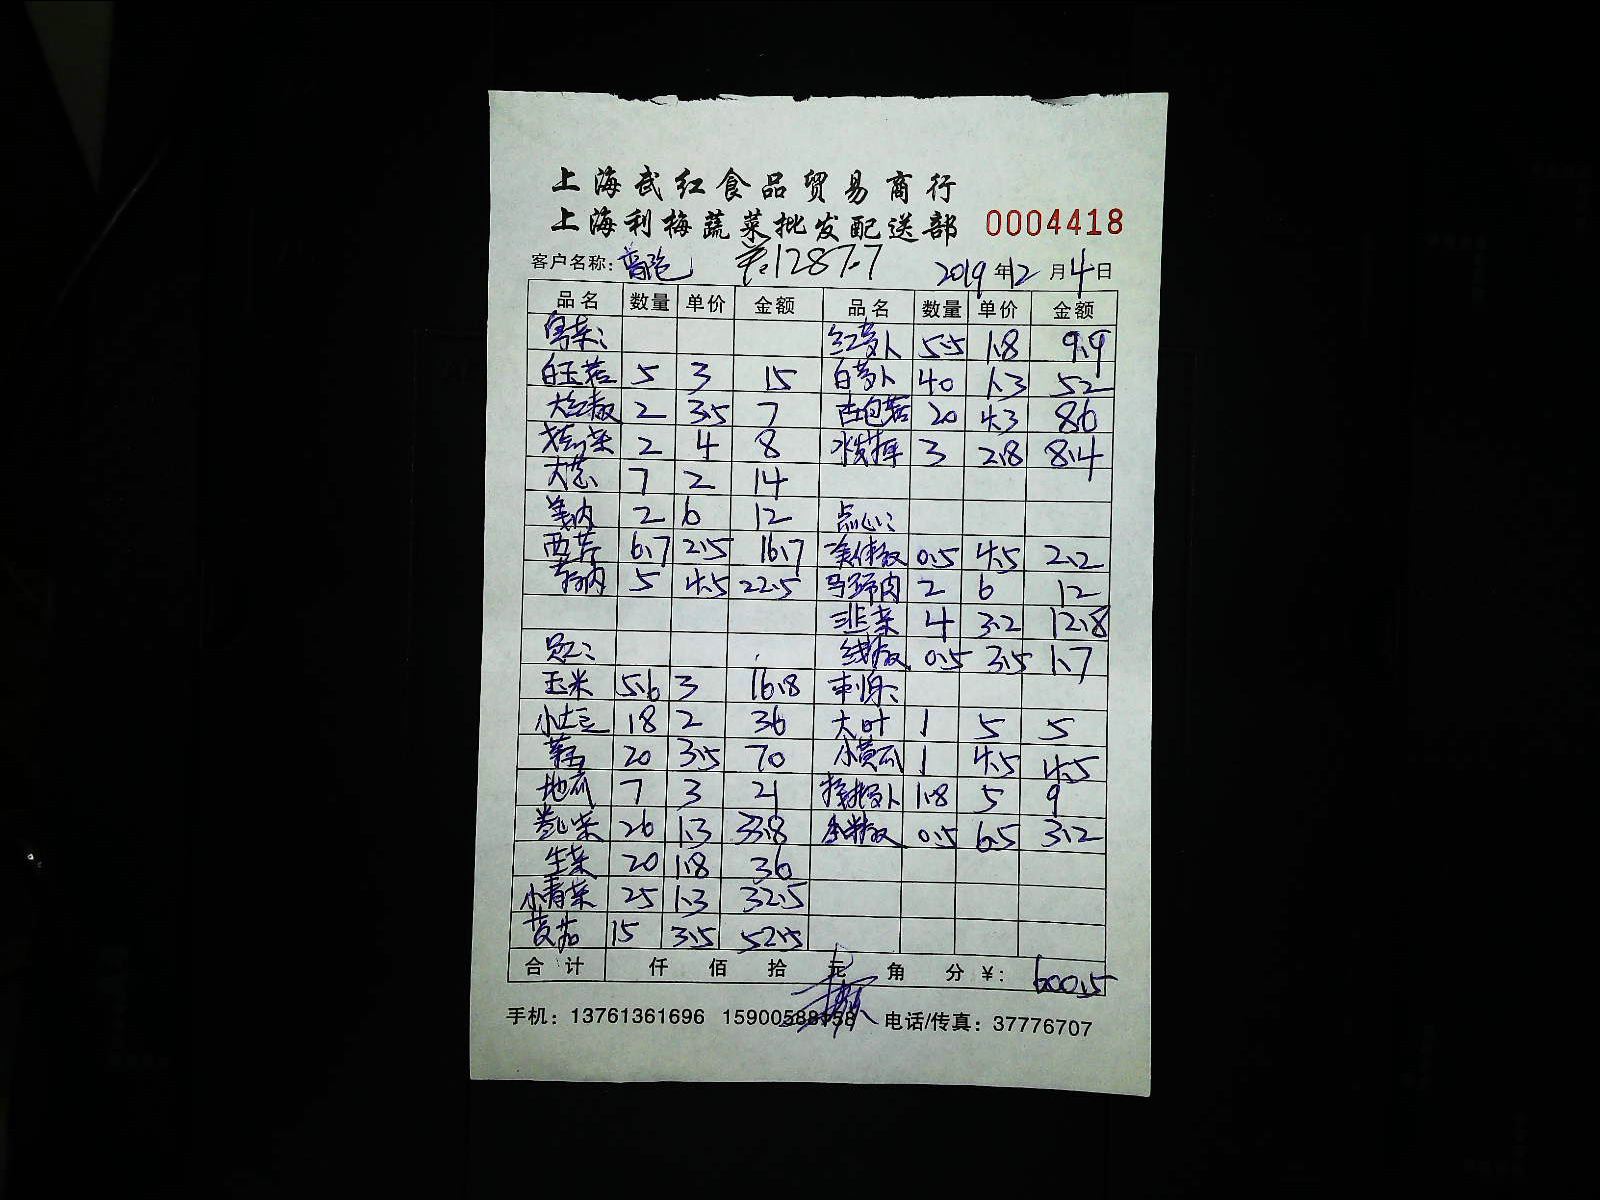 上海武红食品贸易商行
上海利梅蔬菜批发配送部 0004418
客户名称: 共:1287.7 2019年12月4日
品名 数量 单价 金额 品名 数量 单价 金额
粤菜: 红萝卜 5.5 1.8 9.9
白玉菇 5 3 15 白萝卜 40 1.3 52
大红椒 2 3.5 7 20 4.3 86
2 4 8 水发笋 3 2.8 8.4
大葱 7 2 14
2 6 12 点心:
西芹 6.7 2.5 16.7 美人椒 0.5 4.5 2.2
5 4.5 22.5 马蹄肉 2 6 12
韭菜 4 3.2 12.8
员工: 线椒 0.5 3.5 1.7
玉米 5.6 3 16.8 刺身:
小土豆 18 2 36 大叶 1 5 5
20 3.5 70 小黄瓜 1 4.5 4.5
地瓜 7 3 21 1.8 5 9
卷心菜 26 1.3 33.8 0.5 6.5 3.2
生菜 20 1.8 36
小青菜 25 1.3 32.5
15 3.5 52.5
合计 仟 佰 拾 元 角 分 ¥: 600.5
手机: 13761361696 15900588758 电话/传真: 37776707